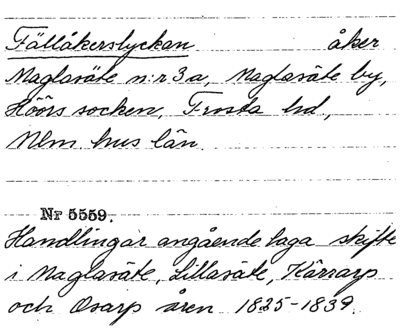 Fällåkerslyckan åker
Maglasäte n:r 3 a, Maglasäte by,
Höörs socken, Frosta hd,
Mlm. hus län.
Nr 5559.
Handlingar angående laga skifte
i Maglasäte, Lillasäte, Kärrarp
och Osarp åren 1835-1839.